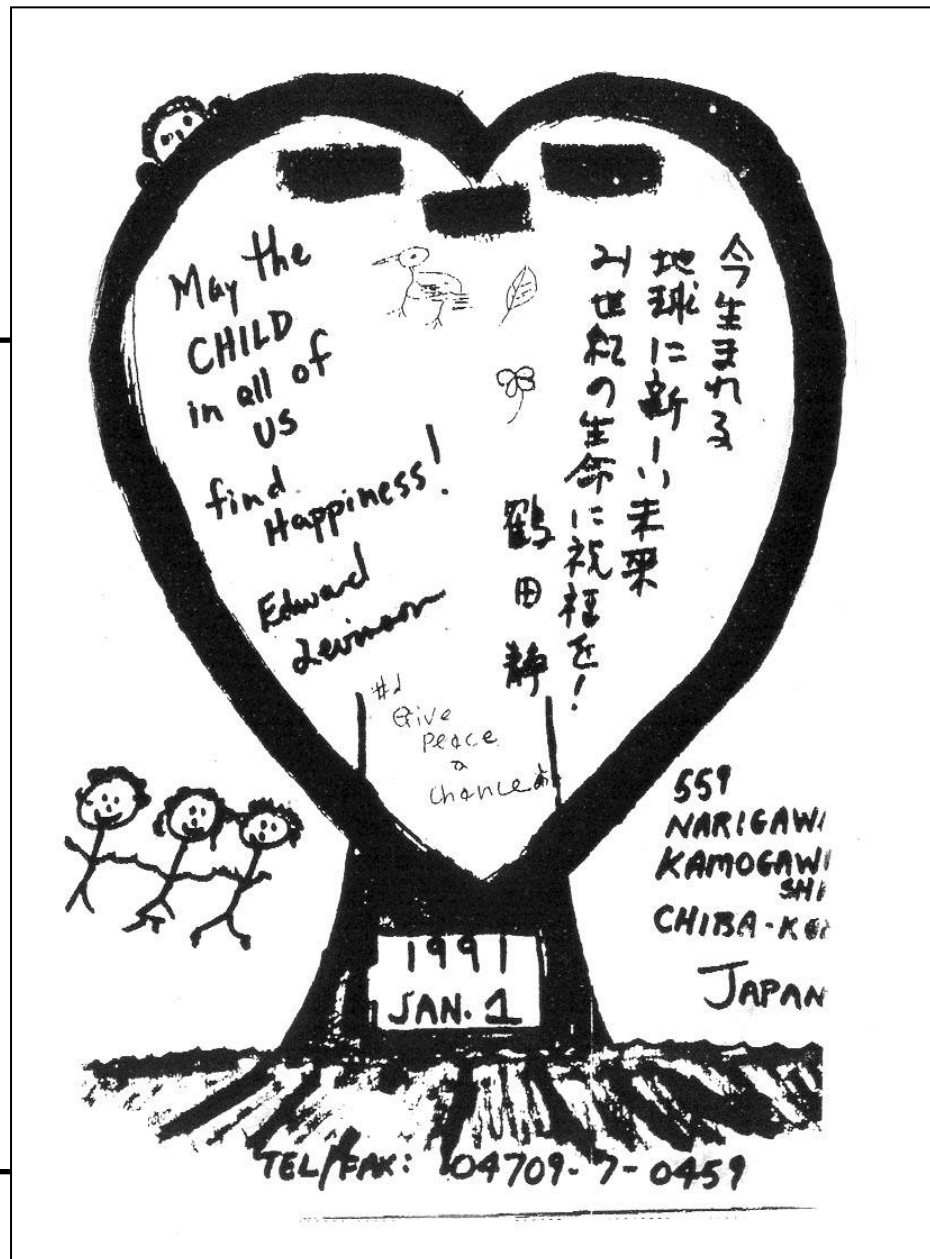 May the
CHILD
in all of
us
find
Happiness!
Edward
Levinson
今生まれる
地球に新しい未来
21世紀の生命に祝福を!
鶴田静
Give
Peace
a
chance
559
NARIGAWA
KAMOGAWA
SHI
CHIBA-KEN
JAPAN
1991
JAN. 1
TEL/FAX: 04709-7-0459